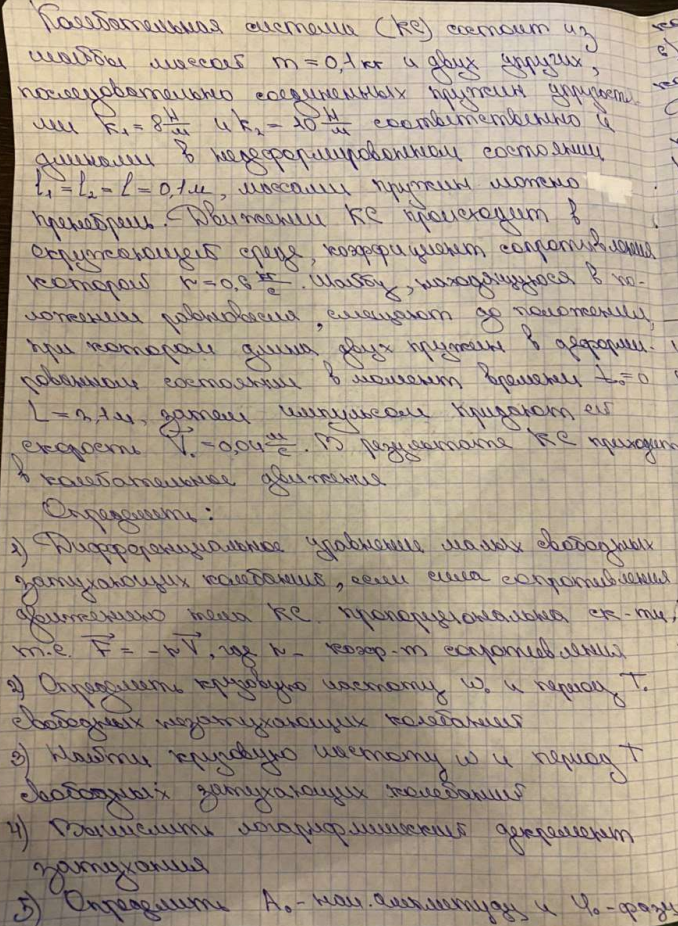 Колебательная система (КС) состоит из
шайбы массой m = 0,1 кг и двух упругих,
последовательно соединенных пружин упругостя-
ми k₁ = 8 Н/м и k₂ = 10 Н/м соответственно и
длинами в недеформированном состоянии
l₁ = l₂ = l = 0,1 м, массами пружин можно
пренебречь. Движении КС происходит в
окружающей среде, коэффициент сопротивления
которой r = 0, кг/с. Шайбу, находящуюся в по-
ложении равновесия, смещают до положении,
при котором длина двух пружин в деформи-
рованном состоянии в момент времени t₀ = 0
L = ,1 м, затем импульсом придают ей
скорость V₀ = 0,04 м/с. В результате КС приходит
в колебательное движения
Определить:
1) Дифференциальное уравнение малых свободных
затухающих колебаний, если сила сопротивления
движению тела КС пропорциональна ск-ти,
т.е. F = -rV, где r - коэф-т сопротивления
2) Определить круговую частоту ω₀ и период T₀
свободных незатухающих колебаний
3) Найти круговую частоту ω и период T
свободных затухающих колебаний
4) Вычислить логарифмический декремент
затухания
5) Определить A₀ - нач. амплитуду и φ₀ - фазу